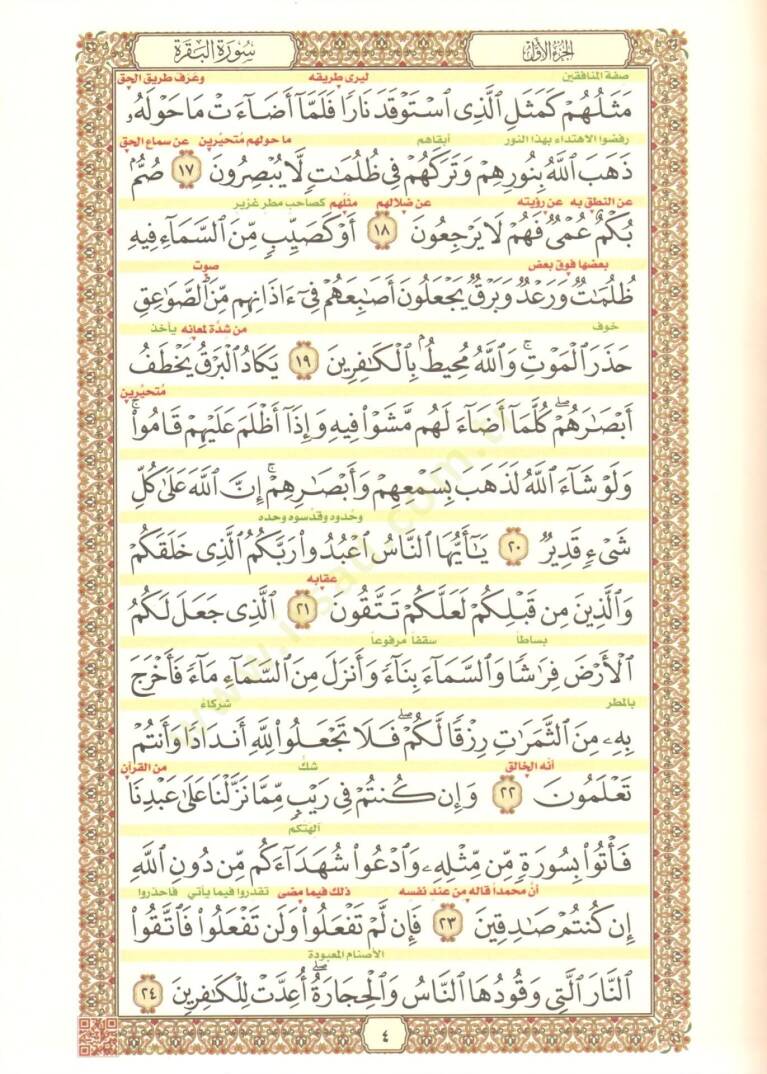 الجزء الأول
سورة البقرة
صفة المنافقين ليرى طريقه وعرف طريق الحق
مَثَلُهُمْ كَمَثَلِ ٱلَّذِى ٱسْتَوْقَدَ نَارًا فَلَمَّآ أَضَآءَتْ مَا حَوْلَهُۥ
رفضوا الاهتداء بهذا النور أبقاهم ما حولهم مُتحيّرين عن سماع الحق
ذَهَبَ ٱللَّهُ بِنُورِهِمْ وَتَرَكَهُمْ فِى ظُلُمَٰتٍ لَّا يُبْصِرُونَ ١٧ صُمٌّۢ
عن النطق به عن رؤيته عن ضلالهم مثلهم كصاحب مطر غزير
بُكْمٌ عُمْىٌ فَهُمْ لَا يَرْجِعُونَ ١٨ أَوْ كَصَيِّبٍ مِّنَ ٱلسَّمَآءِ فِيهِ
بعضها فوق بعض صوت
ظُلُمَٰتٌ وَرَعْدٌ وَبَرْقٌ يَجْعَلُونَ أَصَٰبِعَهُمْ فِىٓ ءَاذَانِهِم مِّنَ ٱلصَّوَٰعِقِ
خوف من شدّة لمعانه يأخذ
حَذَرَ ٱلْمَوْتِ ۚ وَٱللَّهُ مُحِيطٌۢ بِٱلْكَٰفِرِينَ ١٩ يَكَادُ ٱلْبَرْقُ يَخْطَفُ
مُتحيّرين
أَبْصَٰرَهُمْ ۖ كُلَّمَآ أَضَآءَ لَهُم مَّشَوْا۟ فِيهِ وَإِذَآ أَظْلَمَ عَلَيْهِمْ قَامُوا۟ ۚ
وَلَوْ شَآءَ ٱللَّهُ لَذَهَبَ بِسَمْعِهِمْ وَأَبْصَٰرِهِمْ ۚ إِنَّ ٱللَّهَ عَلَىٰ كُلِّ
وحّدوه وقدّسوه وحده
شَىْءٍ قَدِيرٌ ٢٠ يَٰٓأَيُّهَا ٱلنَّاسُ ٱعْبُدُوا۟ رَبَّكُمُ ٱلَّذِى خَلَقَكُمْ
عقابه
وَٱلَّذِينَ مِن قَبْلِكُمْ لَعَلَّكُمْ تَتَّقُونَ ٢١ ٱلَّذِى جَعَلَ لَكُمُ
بساطاً سقفاً مرفوعاً
ٱلْأَرْضَ فِرَٰشًا وَٱلسَّمَآءَ بِنَآءً وَأَنزَلَ مِنَ ٱلسَّمَآءِ مَآءً فَأَخْرَجَ
بالمطر شركاءً
بِهِۦ مِنَ ٱلثَّمَرَٰتِ رِزْقًا لَّكُمْ ۖ فَلَا تَجْعَلُوا۟ لِلَّهِ أَندَادًا وَأَنتُمْ
أنه الخالق شك من القرآن
تَعْلَمُونَ ٢٢ وَإِن كُنتُمْ فِى رَيْبٍ مِّمَّا نَزَّلْنَا عَلَىٰ عَبْدِنَا
آلهتكم
فَأْتُوا۟ بِسُورَةٍ مِّن مِّثْلِهِۦ وَٱدْعُوا۟ شُهَدَآءَكُم مِّن دُونِ ٱللَّهِ
أن محمداً قاله من عند نفسه ذلك فيما مضى تقدروا فيما يأتي فاحذروا
إِن كُنتُمْ صَٰدِقِينَ ٢٣ فَإِن لَّمْ تَفْعَلُوا۟ وَلَن تَفْعَلُوا۟ فَٱتَّقُوا۟
الأصنام المعبودة
ٱلنَّارَ ٱلَّتِى وَقُودُهَا ٱلنَّاسُ وَٱلْحِجَارَةُ ۖ أُعِدَّتْ لِلْكَٰفِرِينَ ٢٤
٤